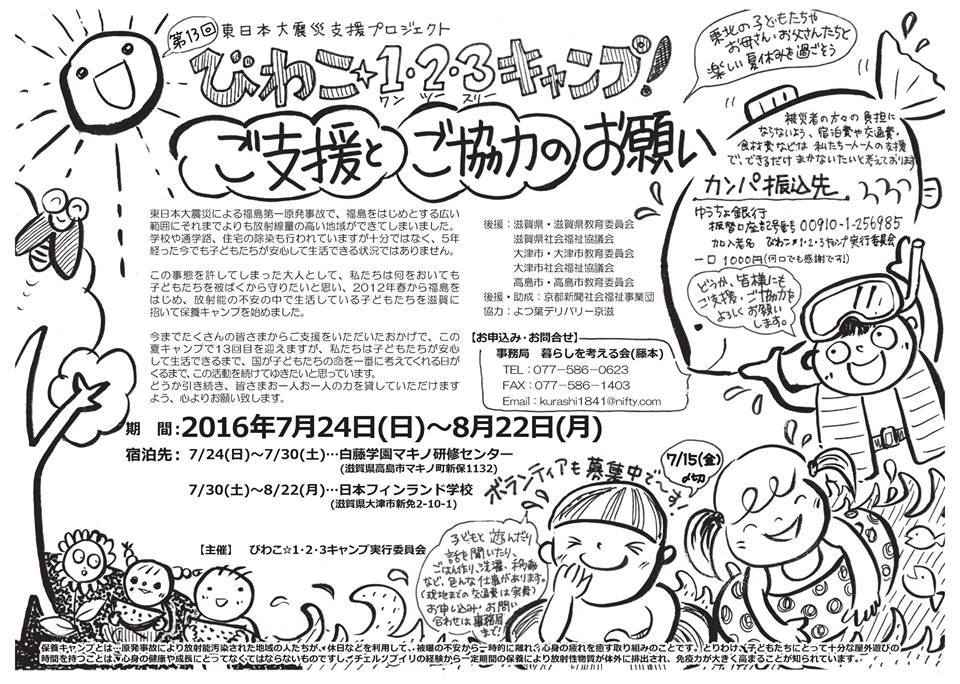 第13回
東日本大震災支援プロジェクト
びわこ☆1・2・3キャンプ!
ワン ツー スリー
ご支援とご協力のお願い
東北の子どもたちや
お母さん・お父さんたちと
楽しい夏休みを過ごそう
被災者の方々の負担に
ならないよう、宿泊費や交通費・
食材費などは私たち一人一人の支援
で、できるだけまかないたいと考えております
カンパ振込先
ゆうちょ銀行
振替口座記号番号 00910-1-256985
加入者名 びわこ☆1・2・3キャンプ実行委員会
一口 1000円(何口でも感謝です!)
どうか、皆様にも
ご支援・ご協力を
よろしくお願い
します。
東日本大震災による福島第一原発事故で、福島をはじめとする広い
範囲にそれまでよりも放射線量の高い地域ができてしまいました。
学校や通学路、住宅の除染も行われていますが十分ではなく、5年
経った今でも子どもたちが安心して生活できる状況ではありません。
この事態を許してしまった大人として、私たちは何をおいても
子どもたちを被ばくから守りたいと思い、2012年春から福島を
はじめ、放射能の不安の中で生活している子どもたちを滋賀に
招いて保養キャンプを始めました。
今までたくさんの皆さまからご支援をいただいたおかげで、この
夏キャンプで13回目を迎えますが、私たちは子どもたちが安心
して生活できるまで、国が子どもたちの命を一番に考えてくれる日が
くるまで、この活動を続けてゆきたいと思っています。
どうか引き続き、皆さまお一人お一人の力を貸していただけます
よう、心よりお願い致します。
後援:滋賀県・滋賀県教育委員会
滋賀県社会福祉協議会
大津市・大津市教育委員会
大津市社会福祉協議会
高島市・高島市教育委員会
後援・助成:京都新聞社会福祉事業団
協力:よつ葉デリバリー京滋
【お申込み・お問合せ】
事務局 暮らしを考える会(藤本)
TEL:077-586-0623
FAX:077-586-1403
Email:kurashi1841@nifty.com
期 間:2016年7月24日(日)～8月22日(月)
宿泊先:7/24(日)～7/30(土)…白藤学園マキノ研修センター
(滋賀県高島市マキノ町新保1132)
7/30(土)～8/22(月)…日本フィンランド学校
(滋賀県大津市新免2-10-1)
【主催】 びわこ☆1・2・3キャンプ実行委員会
ボランティアも募集中で～す!
7/15(金)
〆切
子どもと遊んだり
話を聞いたり、
ごはん作り、洗濯、移動
など、色んな仕事があります。
(現地までの交通費は実費)
お申し込み・お問い
合わせは事務局
まで!
保養キャンプとは…原発事故により放射能汚染された地域の人たちが、休日などを利用して、被曝の不安から一時的に離れ、心身の疲れを癒す取り組みのことです。とりわけ、子どもたちにとって十分な屋外遊びの
時間を持つことは、心身の健康や成長にとってなくてはならないものですし、チェルノブイリの経験から一定期間の保養により放射性物質が体外に排出され、免疫力が大きく高まることが知られています。